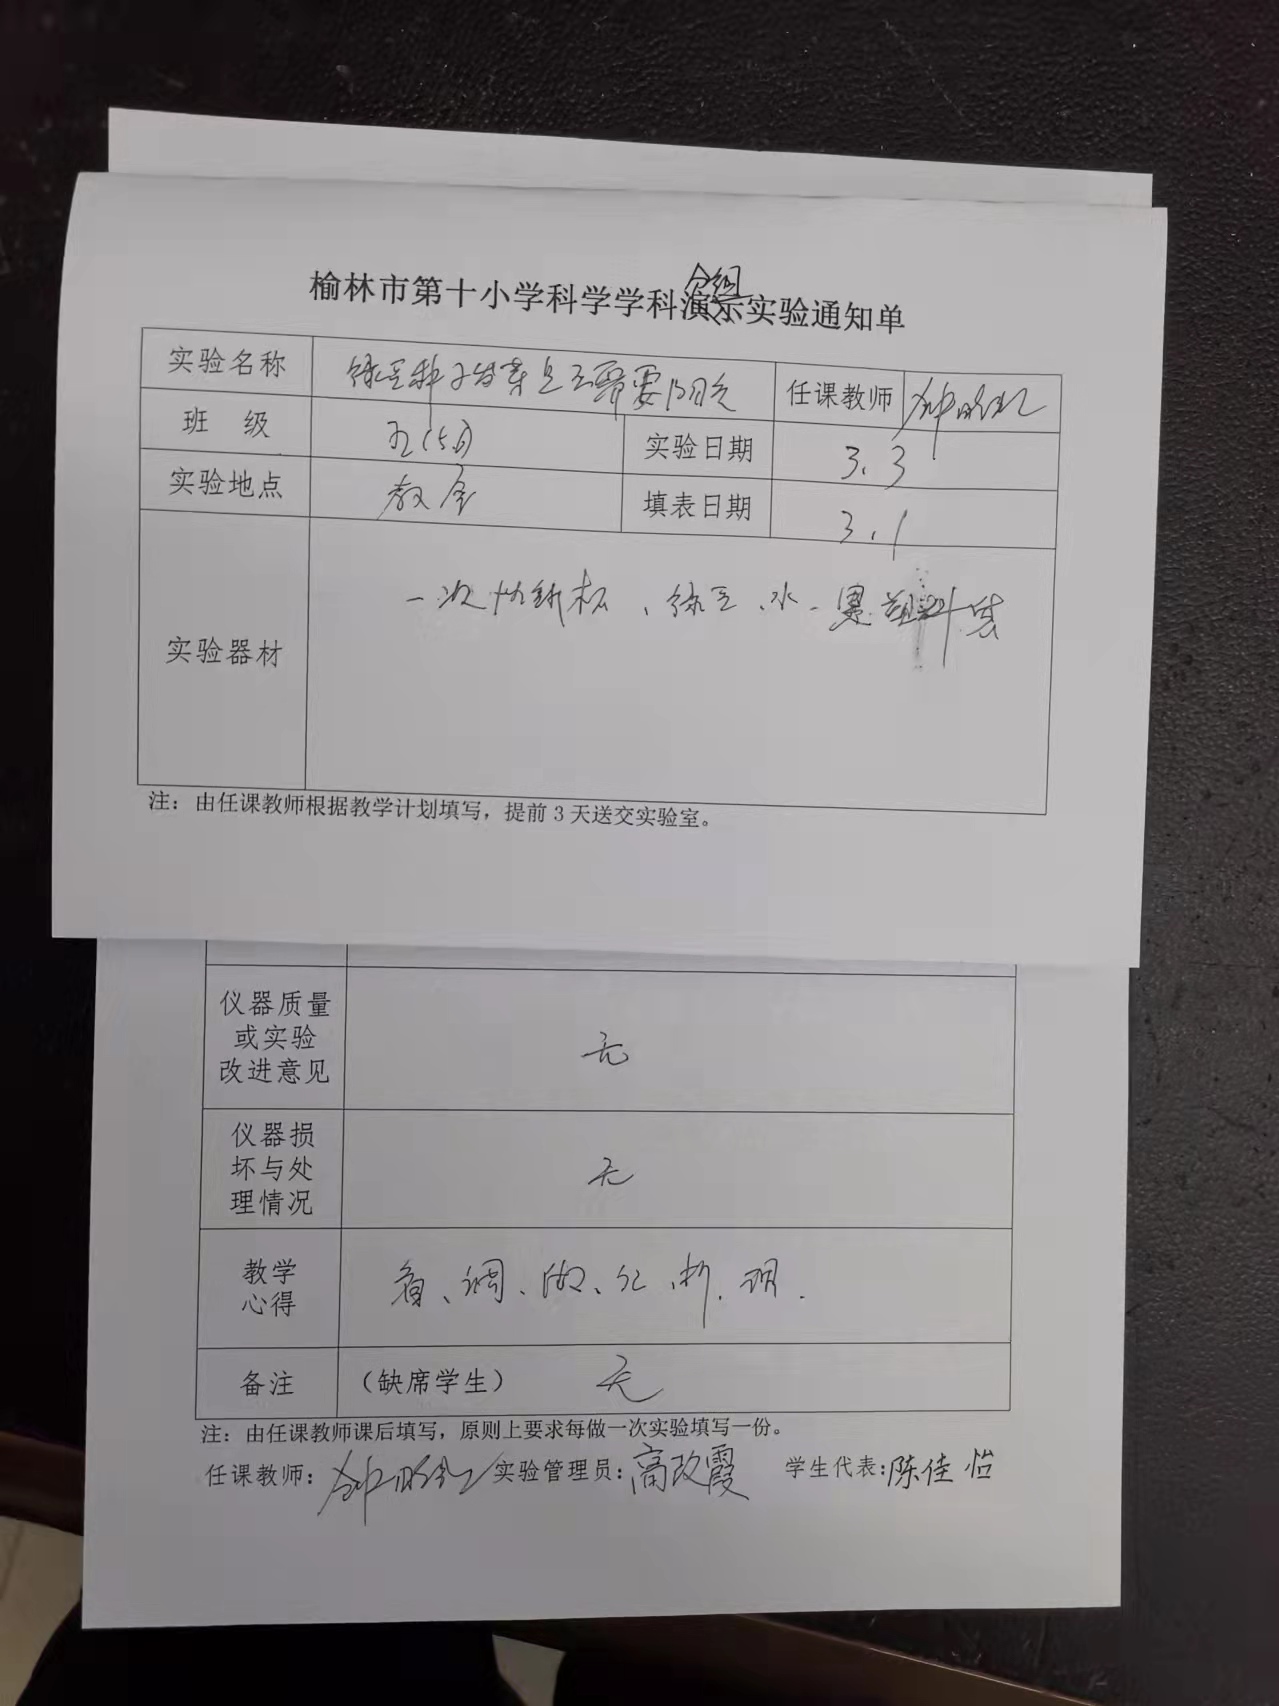 榆林市第十小学科学学科演示实验通知单
分组
实验名称 绿豆种子发芽是否需要阳光 任课教师
班 级 五(5) 实验日期 3.3
实验地点 教室 填表日期 3.1
实验器材 一次性纸杯、绿豆、水、黑塑料袋
注：由任课教师根据教学计划填写，提前3天送交实验室。
仪器质量
或实验
改进意见 无
仪器损
坏与处
理情况 无
教学
心得 看、调、
备注 （缺席学生） 无
注：由任课教师课后填写，原则上要求每做一次实验填写一份。
任课教师： 实验管理员：高改霞 学生代表：陈佳怡